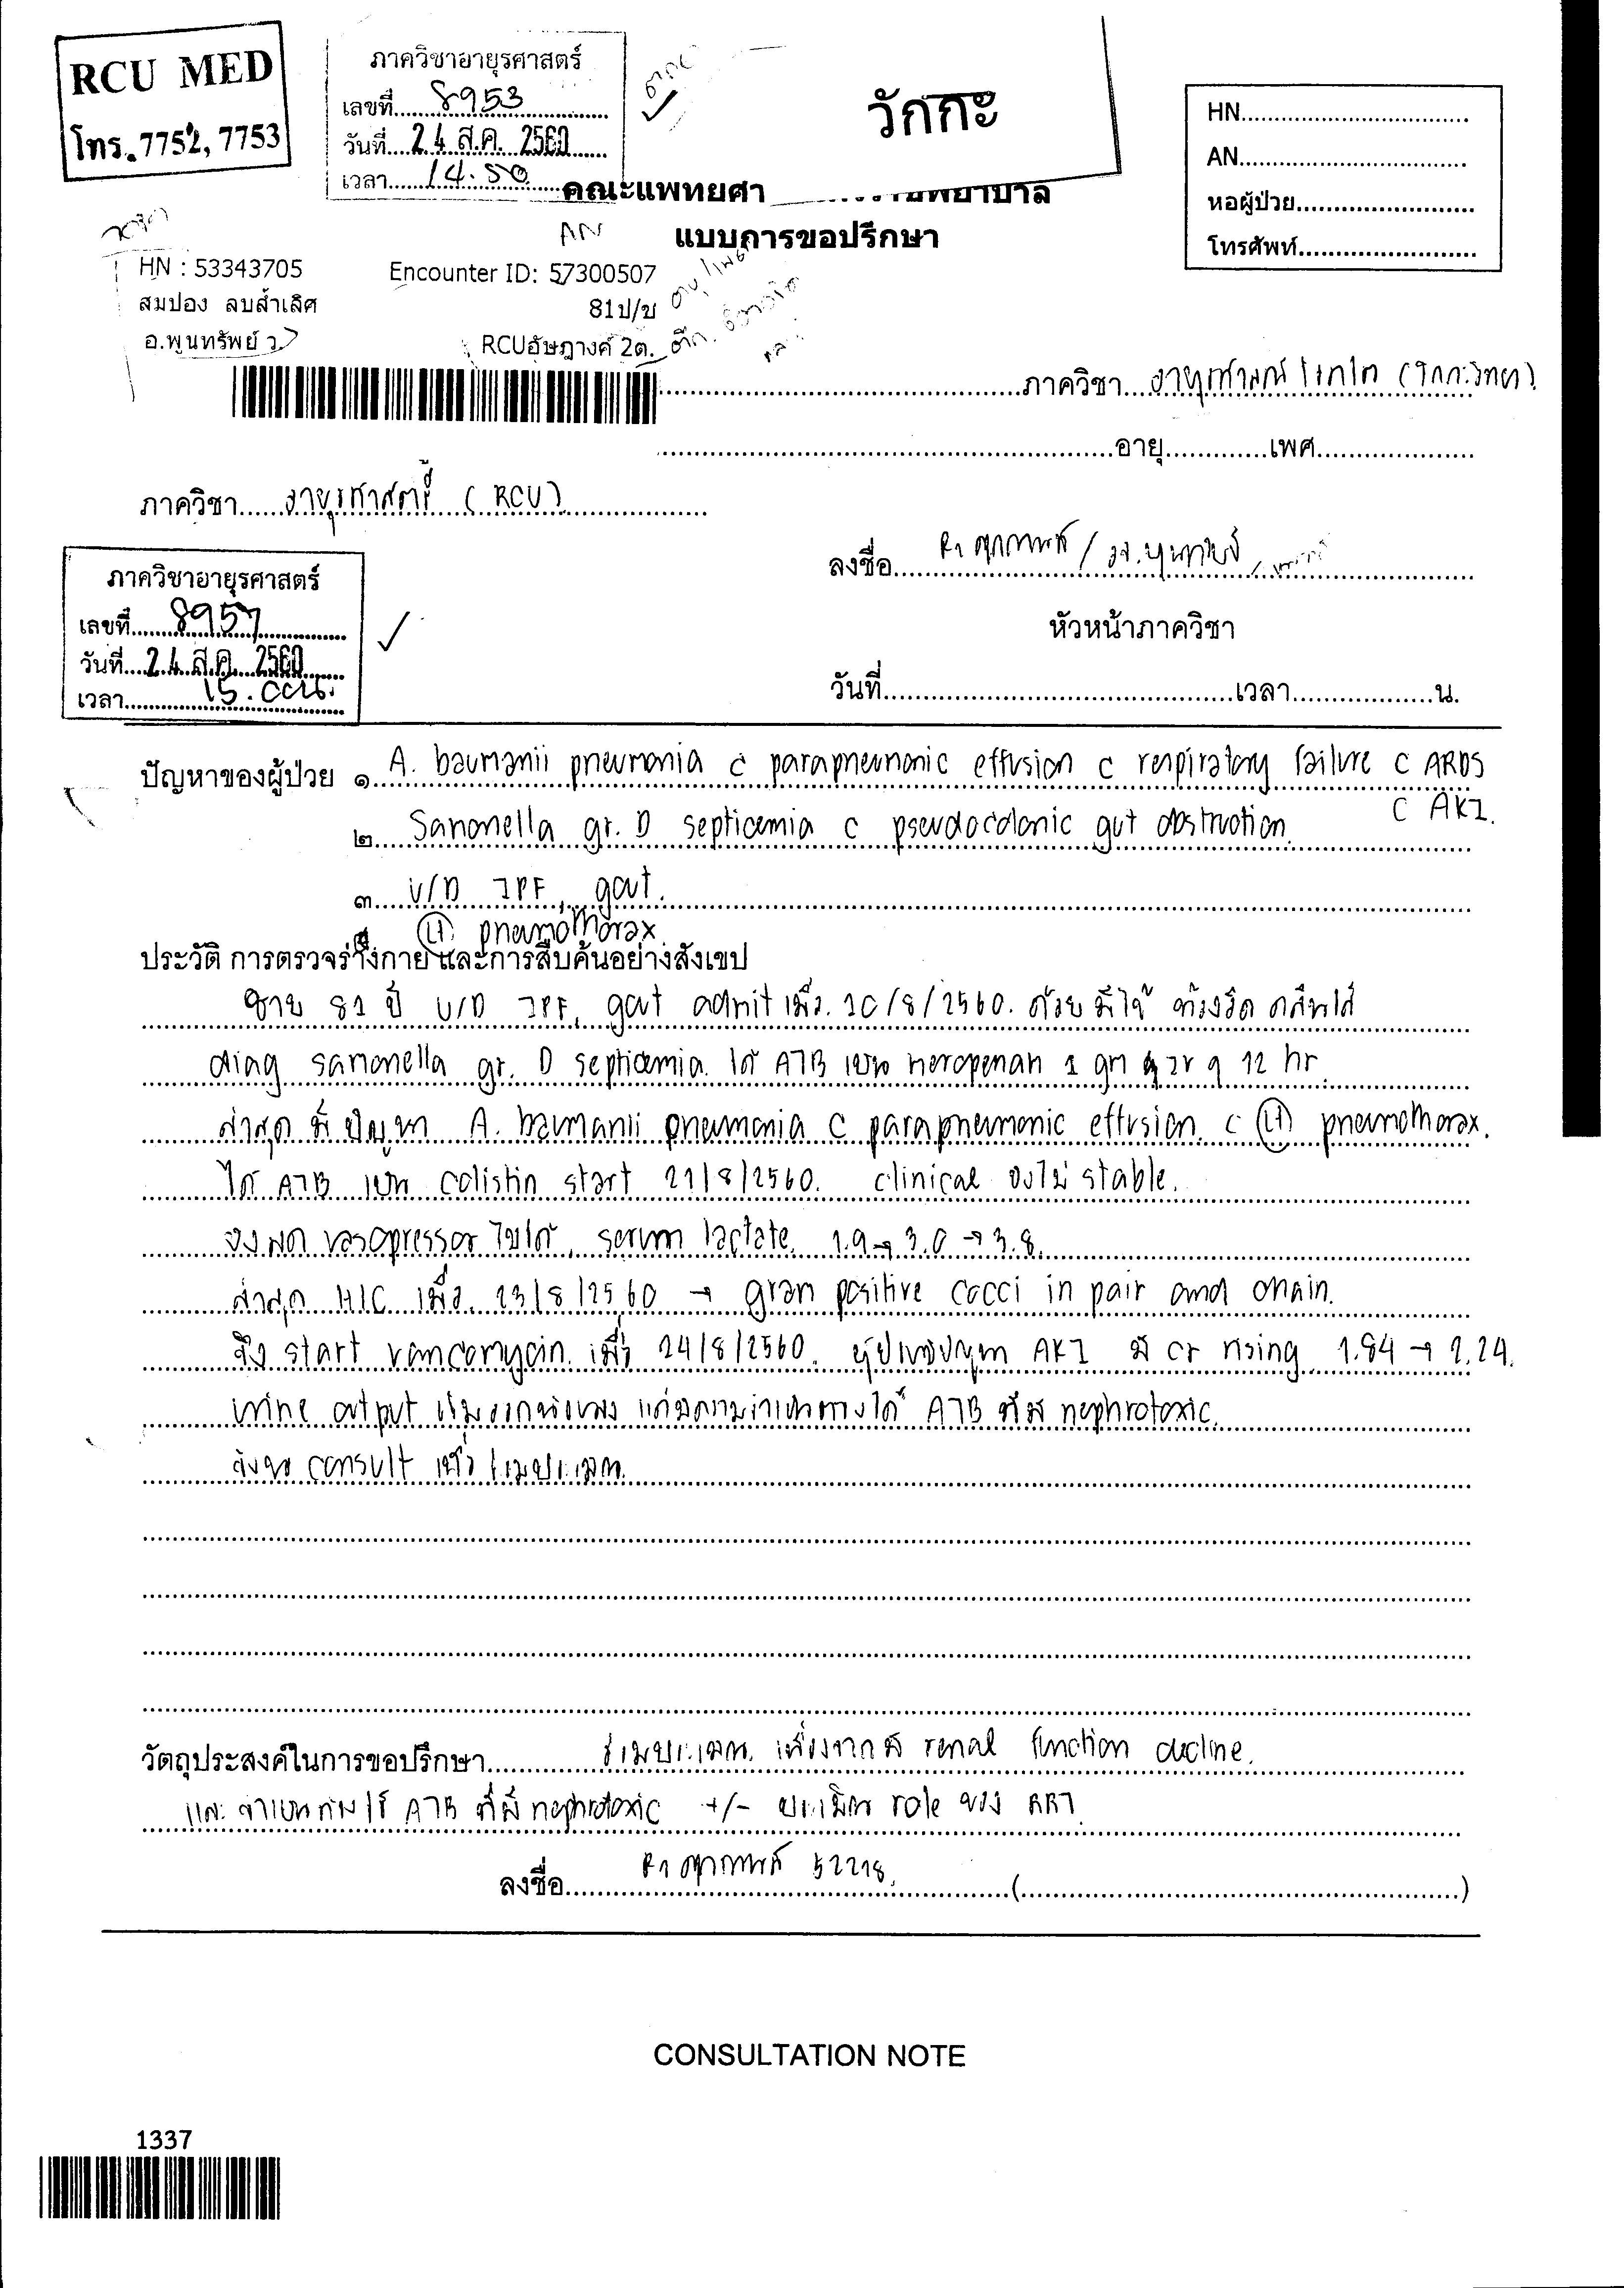 RCU MED
โทร. 7752, 7753
ภาควิชาอายุรศาสตร์
เลขที่ 8953
วันที่ 24 ส.ค. 2560
เวลา 14.50
วักกะ
HN
AN
หอผู้ป่วย
โทรศัพท์
คณะแพทยศา
แบบการขอปรึกษา
AN
HN : 53343705 Encounter ID: 57300507
สมปอง ลบล้ำเลิศ 81ป/ช
อ.พูนทรัพย์ ว. RCUอัษฎางค์ 2ต.
ภาควิชา อายุรศาสตร์ (วักกะวิทยา)
อายุ เพศ
ภาควิชา อายุรศาสตร์ (RCU)
ลงชื่อ R1
หัวหน้าภาควิชา
ภาควิชาอายุรศาสตร์
เลขที่ 8957
วันที่ 24 ส.ค. 2560
เวลา 15.00น.
วันที่ เวลา น.
ปัญหาของผู้ป่วย ๑ A. baumanii pneumonia c parapneumonic effusion c respiratory failure c ARDS
c AKI.
๒ Samonella gr. D septicemia c pseudocolonic gut obstruction
๓ U/D IPF, gout.
๔ Lt pneumothorax
ประวัติ การตรวจร่างกาย และการสืบค้นอย่างสังเขป
ชาย 81 ปี U/D IPF, gout admit เมื่อ 20/8/2560. ด้วย มีไข้ ท้องอืด คลื่นไส้
diag samonella gr. D septicemia. ได้ ATB เป็น meropenam 1 gm iv q 12 hr.
ล่าสุด มีปัญหา A. baumanii pneumonia c parapneumonic effusion c Lt pneumothorax.
ได้ ATB เป็น colistin start 21/8/2560. clinical ยังไม่ stable.
ยังลด vasopressor ไม่ได้, serum lactate 1.9 → 3.0 → 3.8.
ล่าสุด H/C เมื่อ 23/8/2560 → gram positive cocci in pair and chain.
จึง start vancomycin เมื่อ 24/8/2560. ผู้ป่วยมีปัญหา AKI มี cr rising 1.84 → 2.24.
urine output เริ่มออกน้อยลง แต่มีความจำเป็นต้องได้ ATB ที่มี nephrotoxic.
จึงขอ consult เพื่อร่วมประเมิน
วัตถุประสงค์ในการขอปรึกษา ร่วมประเมิน เนื่องจากมี renal function decline.
และจำเป็นต้องใช้ ATB ที่มี nephrotoxic +/- ประเมิน role ของ RRT
ลงชื่อ R1 52218 ( )
CONSULTATION NOTE
1337